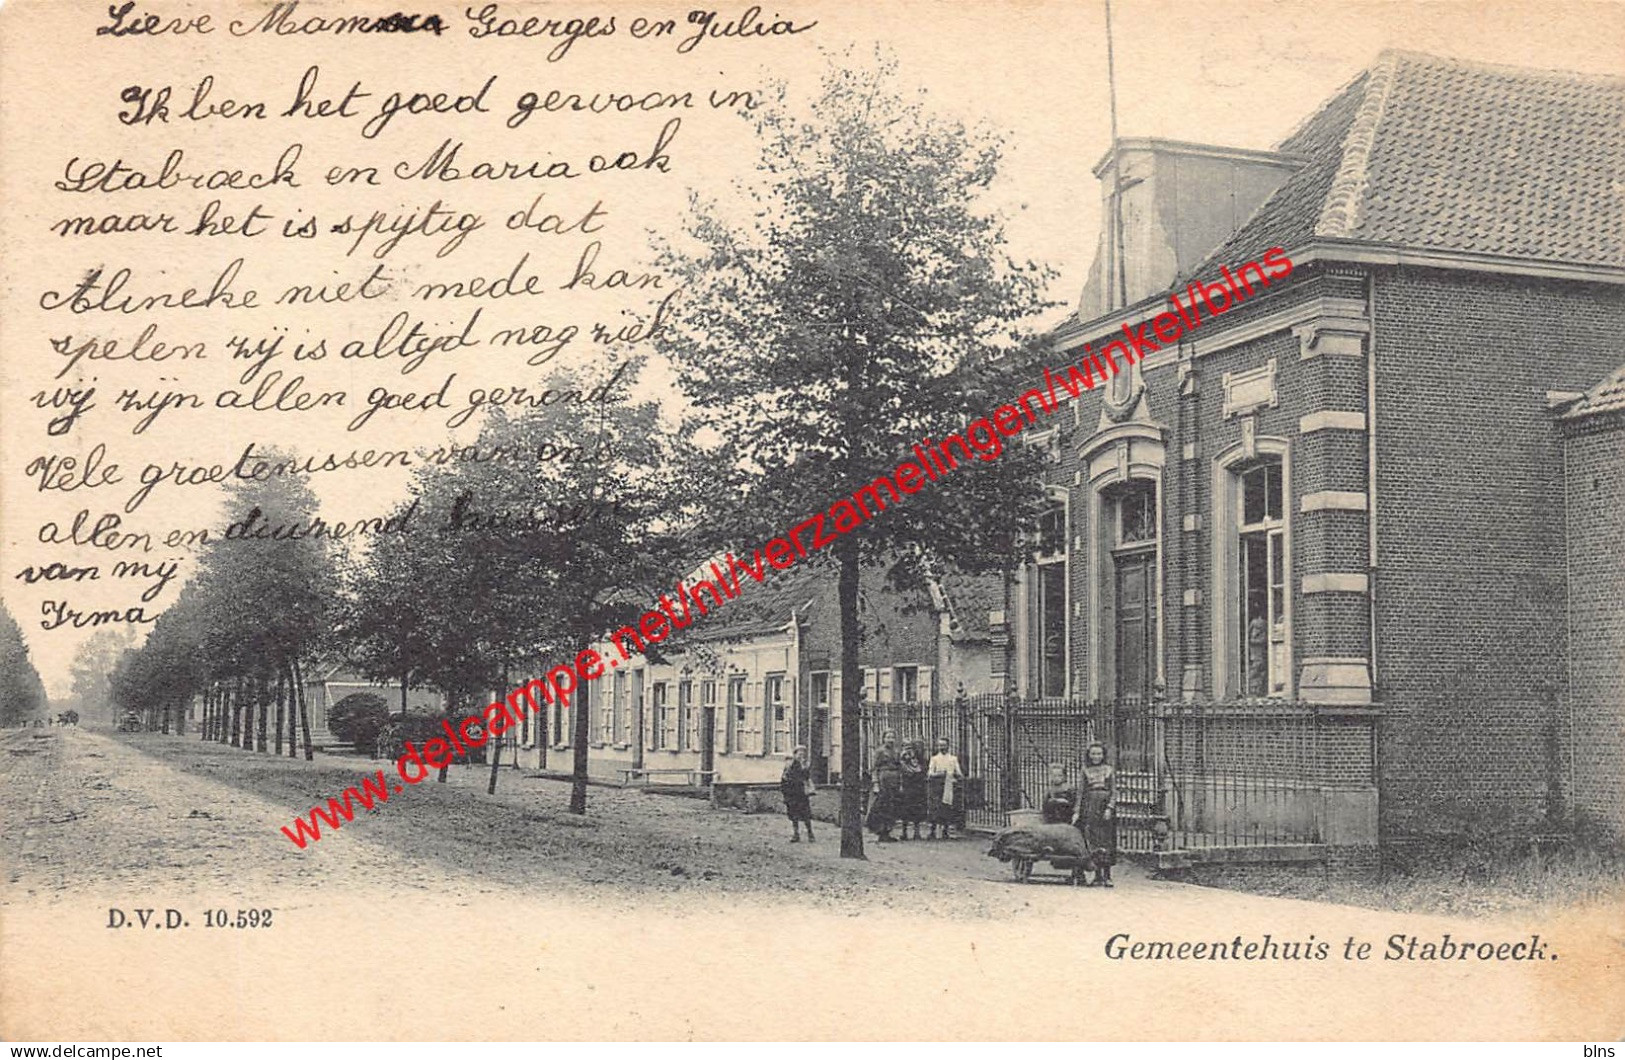 Lieve Mamma Goerges en Julia
Ik ben het goed gewoon in
Stabroeck en Maria ook
maar het is spijtig dat
Alineke niet mede kan
spelen zij is altyd nog ziek
wij zijn allen goed gezond
Vele groetenissen van ons
allen en duizend kussen
van mij
Irma
www.delcampe.net/nl/verzamelingen/winkel/blns
D.V.D. 10.592
Gemeentehuis te Stabroeck.
www.delcampe.net
blns